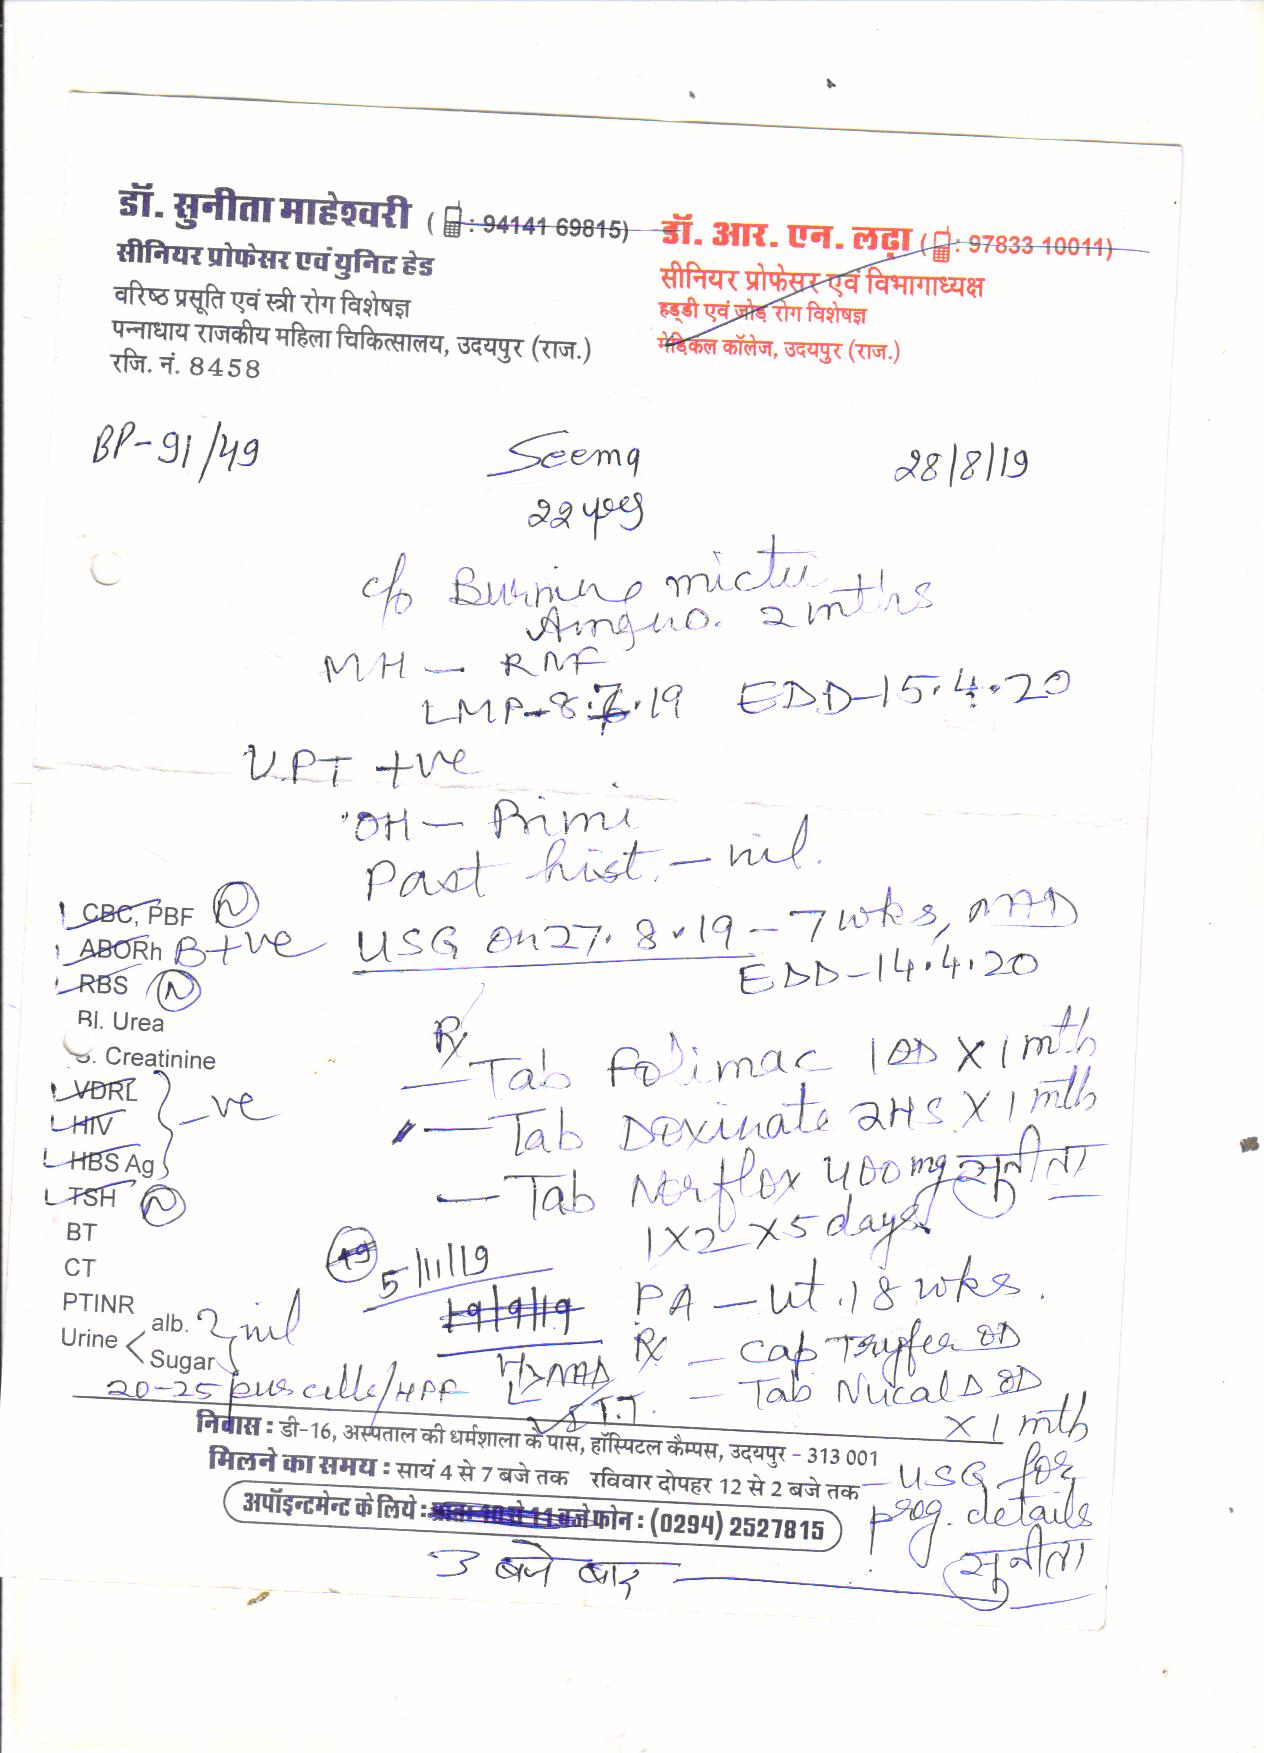 डॉ. सुनीता माहेश्वरी ( : 94141 69815)
सीनियर प्रोफेसर एवं युनिट हेड
वरिष्ठ प्रसूति एवं स्त्री रोग विशेषज्ञ
पन्नाधाय राजकीय महिला चिकित्सालय, उदयपुर (राज.)
रजि. नं. 8458
डॉ. आर. एन. लढ़ा ( : 97833 10011)
सीनियर प्रोफेसर एवं विभागाध्यक्ष
हड्डी एवं जोड़ रोग विशेषज्ञ
मेडिकल कॉलेज, उदयपुर (राज.)
BP-91/49
Seema
28/8/19
22 yrs
c/o Burning mictu
2 mths
MH - RNF
LMP-8.7.19 EDD-15.4.20
UPT +ve
OH - Primi
Past hist. - nil.
USG on 27.8.19 - 7 wks, NAD
EDD-14.4.20
CBC, PBF N
ABORh B+ve
RBS N
Bl. Urea
S. Creatinine
VDRL
HIV -ve
HBS Ag
TSH N
BT
CT
PTINR
Urine < alb. nil
Sugar
20-25 pus cells/HPF
Rx
- Tab Folimac 1 OD X 1 mth
- Tab Doxinate 2HS X 1 mth
- Tab Norflox 400mg सुनीता
1X2 X5 days
5/11/19
19/9/19
PA - ut. 18 wks.
Rx - Cap Tryfer OD
NAD
T.T.
- Tab Nucal D OD
X 1 mth
- USG for
preg. details
सुनीता
निवास : डी-16, अस्पताल की धर्मशाला के पास, हॉस्पिटल कैम्पस, उदयपुर - 313 001
मिलने का समय : सायं 4 से 7 बजे तक रविवार दोपहर 12 से 2 बजे तक
अपॉइन्टमेन्ट के लिये : प्रातः 10 से 11 बजे फोन : (0294) 2527815
3 बजे बाद